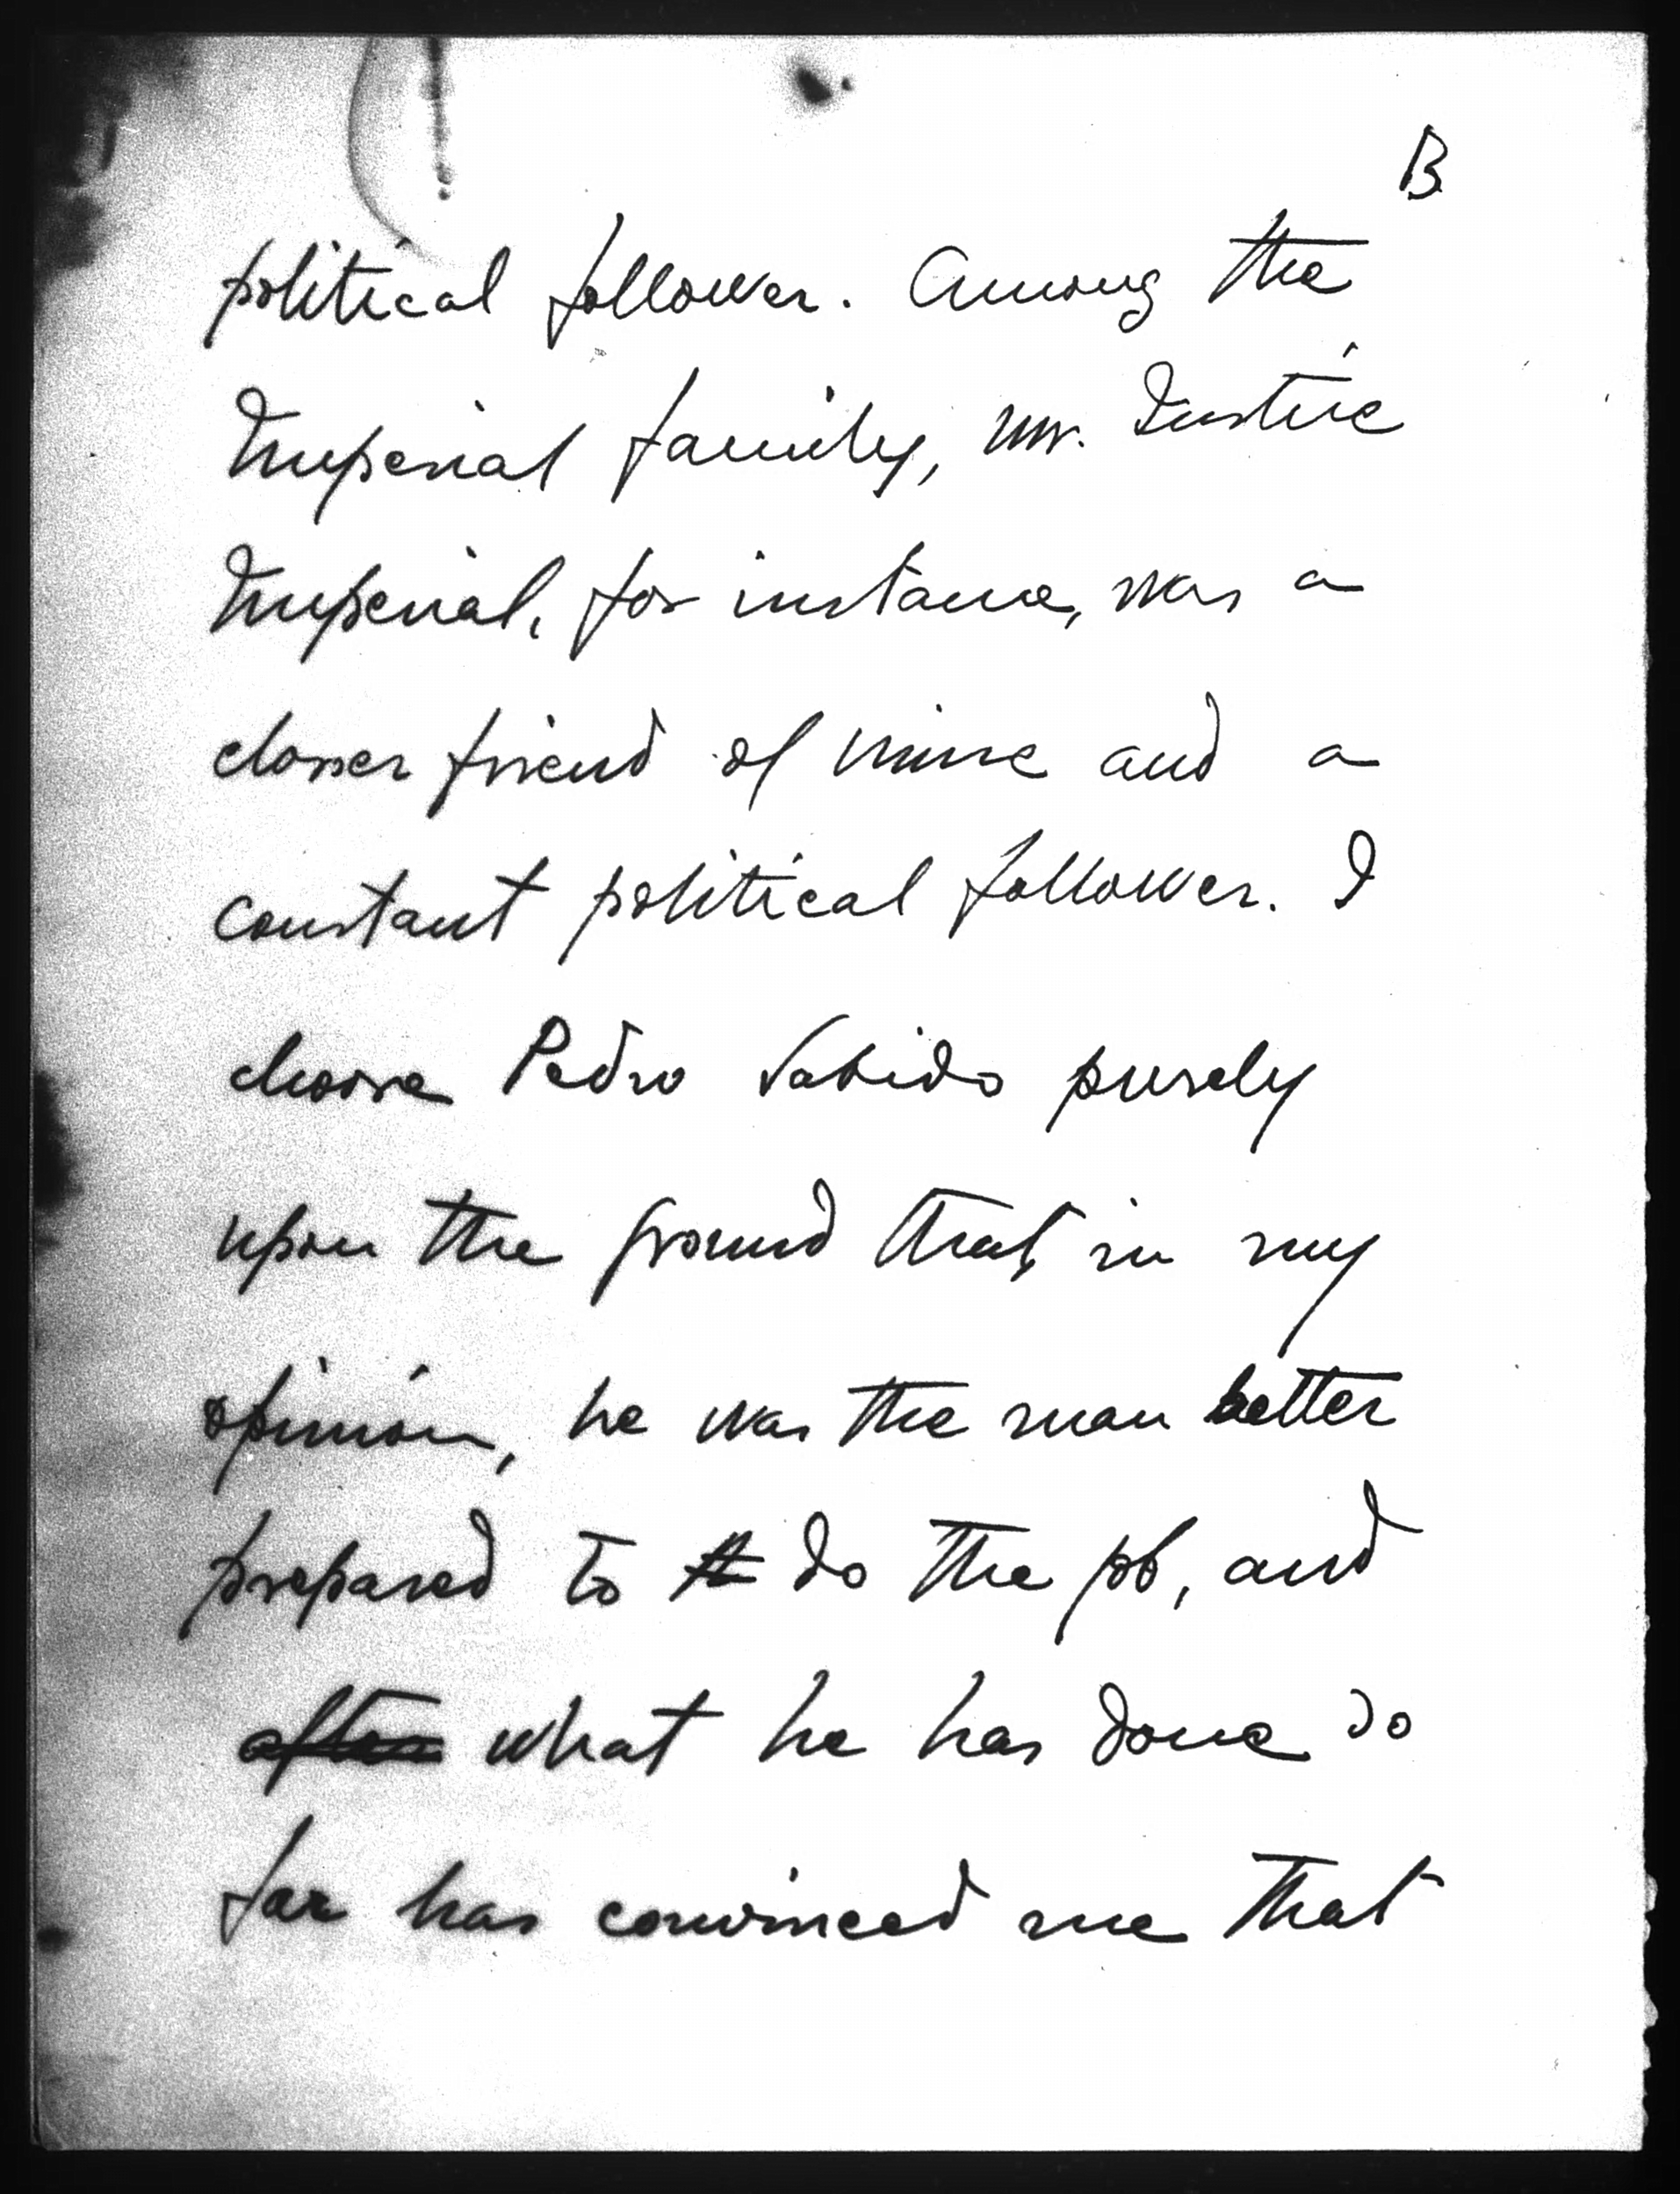 B
political follower. Among the
Imperial family, Mr. Justice
Imperial, for instance, was a
closer friend of mine and a
constant political follower. I
choose Pedro Sabido purely
upon the ground that, in my
opinion, he was the man better
prepared to do the job, and
after what he has done so
far has convinced me that